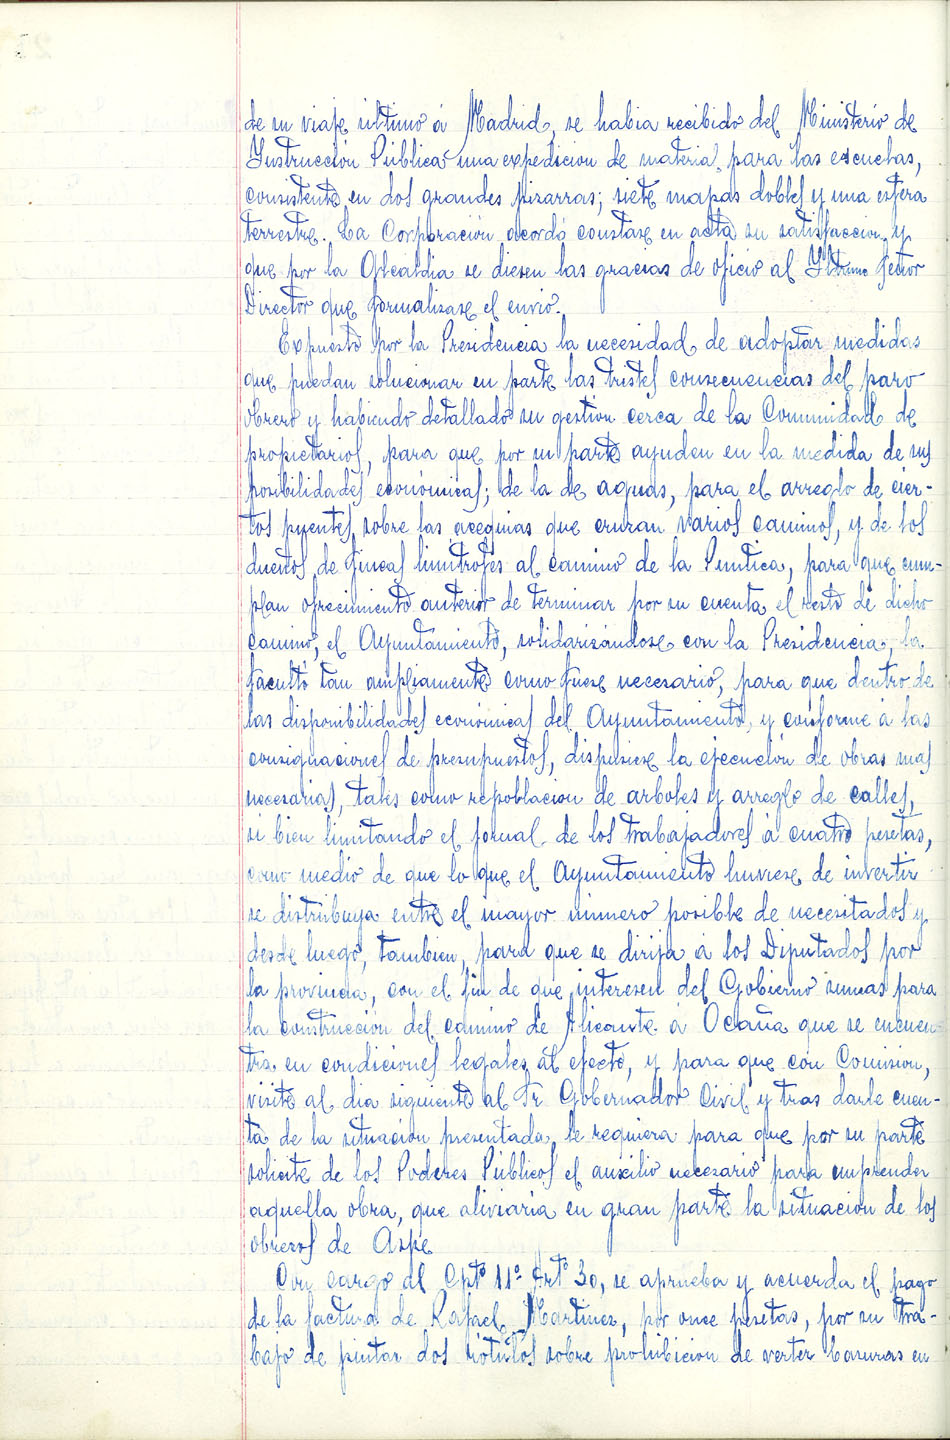 de su viaje último á Madrid, se habia recibido del Ministerio de
Ynstrucción Pública una expedicion de material para las escuelas,
consistente en dos grandes pizarras; siete mapas dobles y una esfera
terrestre. La Corporación acordó constase en acta su satisfaccion y
que por la Alcaldia se diesen las gracias de oficio al Yltrmo Señor
Director que formalizase el envio.
Expuesto por la Presidencia la necesidad de adoptar medidas
que puedan solucionar en parte las tristes consecuencias del paro
obrero y habiendo detallado su gestión cerca de la Comunidad de
propietarios, para que por su parte ayuden en la medida de sus
posibilidades económicas; de la de aguas, para el arreglo de cier-
tos puentes sobre las acequias que cruzan varios caminos, y de los
dueños de fincas limitrofes al camino de la Puntica, para que cum-
plan ofrecimiento anterior de terminar por su cuenta el resto de dicho
camino, el Ayuntamiento, solidarizándose con la Presidencia, la
facultó tan ampliamente como fuese necesario, para que dentro de
las disponibilidades económicas del Ayuntamiento, y conforme á las
consignaciones de presupuestos, dispusiese la ejecución de obras mas
necesarias, tales como repoblacion de arboles y arreglo de calles,
si bien limitando el jornal de los trabajadores á cuatro pesetas,
como medio de que lo que el Ayuntamiento huviese de invertir
se distribuya entre el mayor número posible de necesitados y
desde luego, tambien, para que se dirija á los Diputados por
la provincia, con el fin de que interesen del Gobierno sumas para
la construcción del camino de Alicante á Ocaña que se encuen-
tra en condiciones legales al efecto, y para que con Comision,
visite al dia siguiente al Sr Gobernador Civil y tras darle cuen-
ta de la situación presentada, le requiera para que por su parte
solicite de los Poderes Públicos el auxilio necesario para emprender
aquella obra, que aliviaría en gran parte la situacion de los
obreros de Aspe
Con cargo al Cptº 11º Artº 3o, se aprueba y acuerda el pago
de la factura de Rafael Martinez, por once pesetas, por su tra-
bajo de pintar dos rótulos sobre prohibicion de verter basuras en